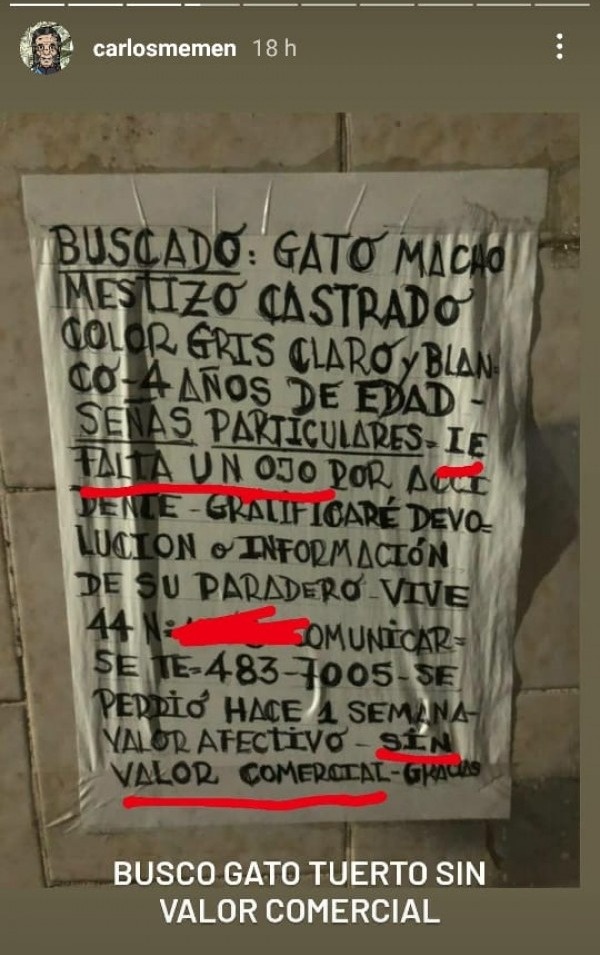 carlosmemen 18 h
BUSCADO: GATO MACHO
MESTIZO CASTRADO
COLOR GRIS CLARO y BLAN-
CO-4 AÑOS DE EDAD -
SEÑAS PARTICULARES- LE
FALTA UN OJO POR ACCI
DENTE - GRATIFICARÉ DEVO-
LUCION o INFORMACIÓN
DE SU PARADERO-VIVE
44 Nº OMUNICAR-
SE TE-483-7005-SE
PERDIÓ HACE 1 SEMANA-
VALOR AFECTIVO - SIN
VALOR COMERCIAL-GRACIAS
BUSCO GATO TUERTO SIN
VALOR COMERCIAL